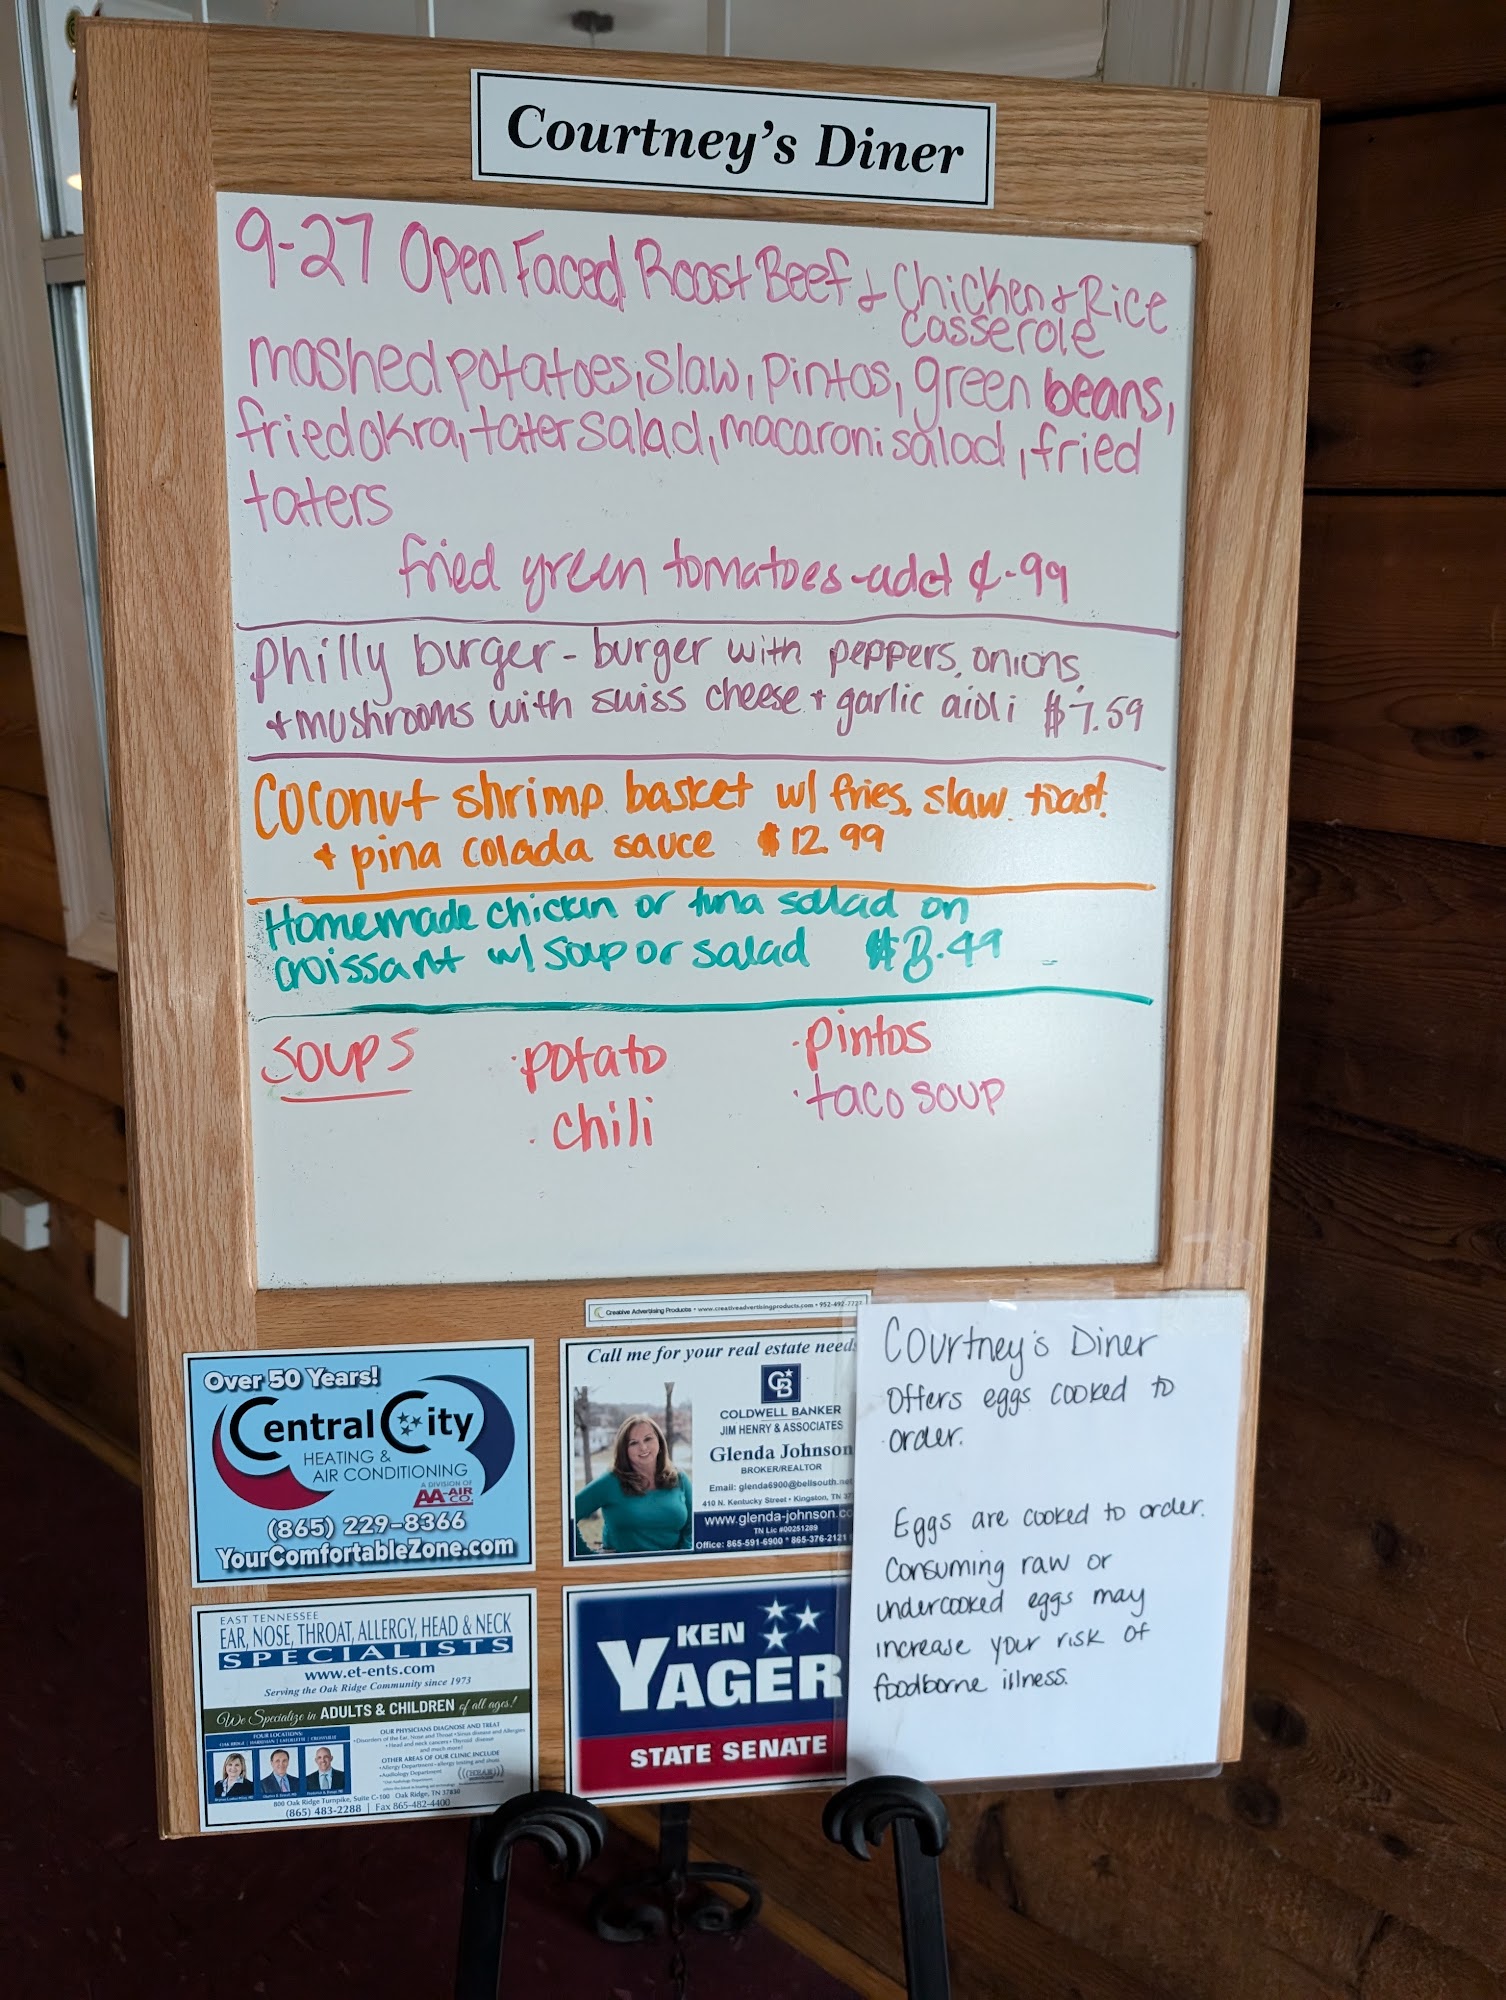 Courtney's Diner
9-27 Open Faced Roast Beef & Chicken & Rice
Casserole
mashed potatoes, slaw, pintos, green beans,
fried okra, tater salad, macaroni salad, fried
taters
fried green tomatoes - add ¢.99
Philly burger - burger with peppers, onions,
+ mushrooms with swiss cheese + garlic aioli $7.59
Coconut shrimp basket w/ fries, slaw, toast
+ pina colada sauce $12.99
Homemade chicken or tuna salad on
croissant w/ soup or salad $8.49
Soups
· potato
· chili
· pintos
· taco soup
Creative Advertising Products • www.creativeadvertisingproducts.com • 952-492-7723
Over 50 Years!
Central City
HEATING &
AIR CONDITIONING
A DIVISION OF
AA-AIR
CO.
(865) 229-8366
YourComfortableZone.com
Call me for your real estate needs
CB
COLDWELL BANKER
JIM HENRY & ASSOCIATES
Glenda Johnson
BROKER/REALTOR
Email: glenda6900@bellsouth.net
410 N. Kentucky Street • Kingston, TN
www.glenda-johnson.co
TN Lic #00251289
Office: 865-591-6900 * 865-376-2121
EAST TENNESSEE
EAR, NOSE, THROAT, ALLERGY, HEAD & NECK
SPECIALISTS
www.et-ents.com
Serving the Oak Ridge Community since 1973
We Specialize in ADULTS & CHILDREN of all ages!
FOUR LOCATIONS:
OAK RIDGE | HARRIMAN | LAFOLLETTE | CROSSVILLE
OUR PHYSICIANS DIAGNOSE AND TREAT
• Disorders of the Ear, Nose and Throat • Sinus disease and Allergies
• Head and neck cancers • Thyroid disease
and much more!
OTHER AREAS OF OUR CLINIC INCLUDE
• Allergy Department - allergy testing and shots
• Audiology Department
800 Oak Ridge Turnpike, Suite C-100 Oak Ridge, TN 37830
(865) 483-2288 | Fax 865-482-4400
KEN
YAGER
STATE SENATE
Courtney's Diner
Offers eggs cooked to
order.
Eggs are cooked to order.
Consuming raw or
undercooked eggs may
increase your risk of
foodborne illness.